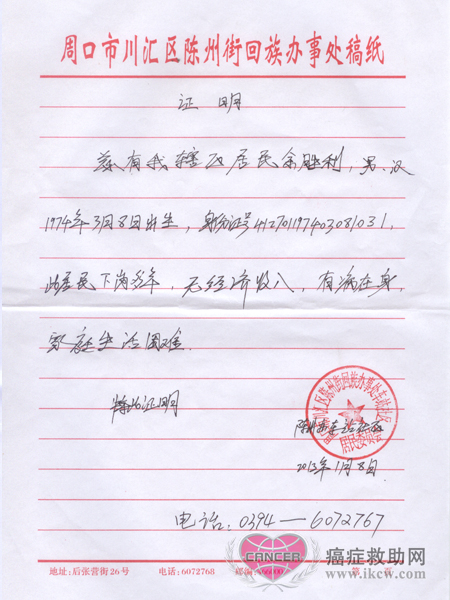 周口市川汇区陈州街回族办事处稿纸
证明
兹有我辖区居民余胜利,男,汉
1974年3月8日出生,身份证号412701197403081031,
此居民下岗多年,无经济收入,有病在身
家庭生活困难.
特此证明
陈州街东站社区
2013年1月8日.
居民委员会
电话:0394—6072767
CANCER
癌症救助网
www.ikcw.com
地址:后张营街26号 电话:6072768 邮编: